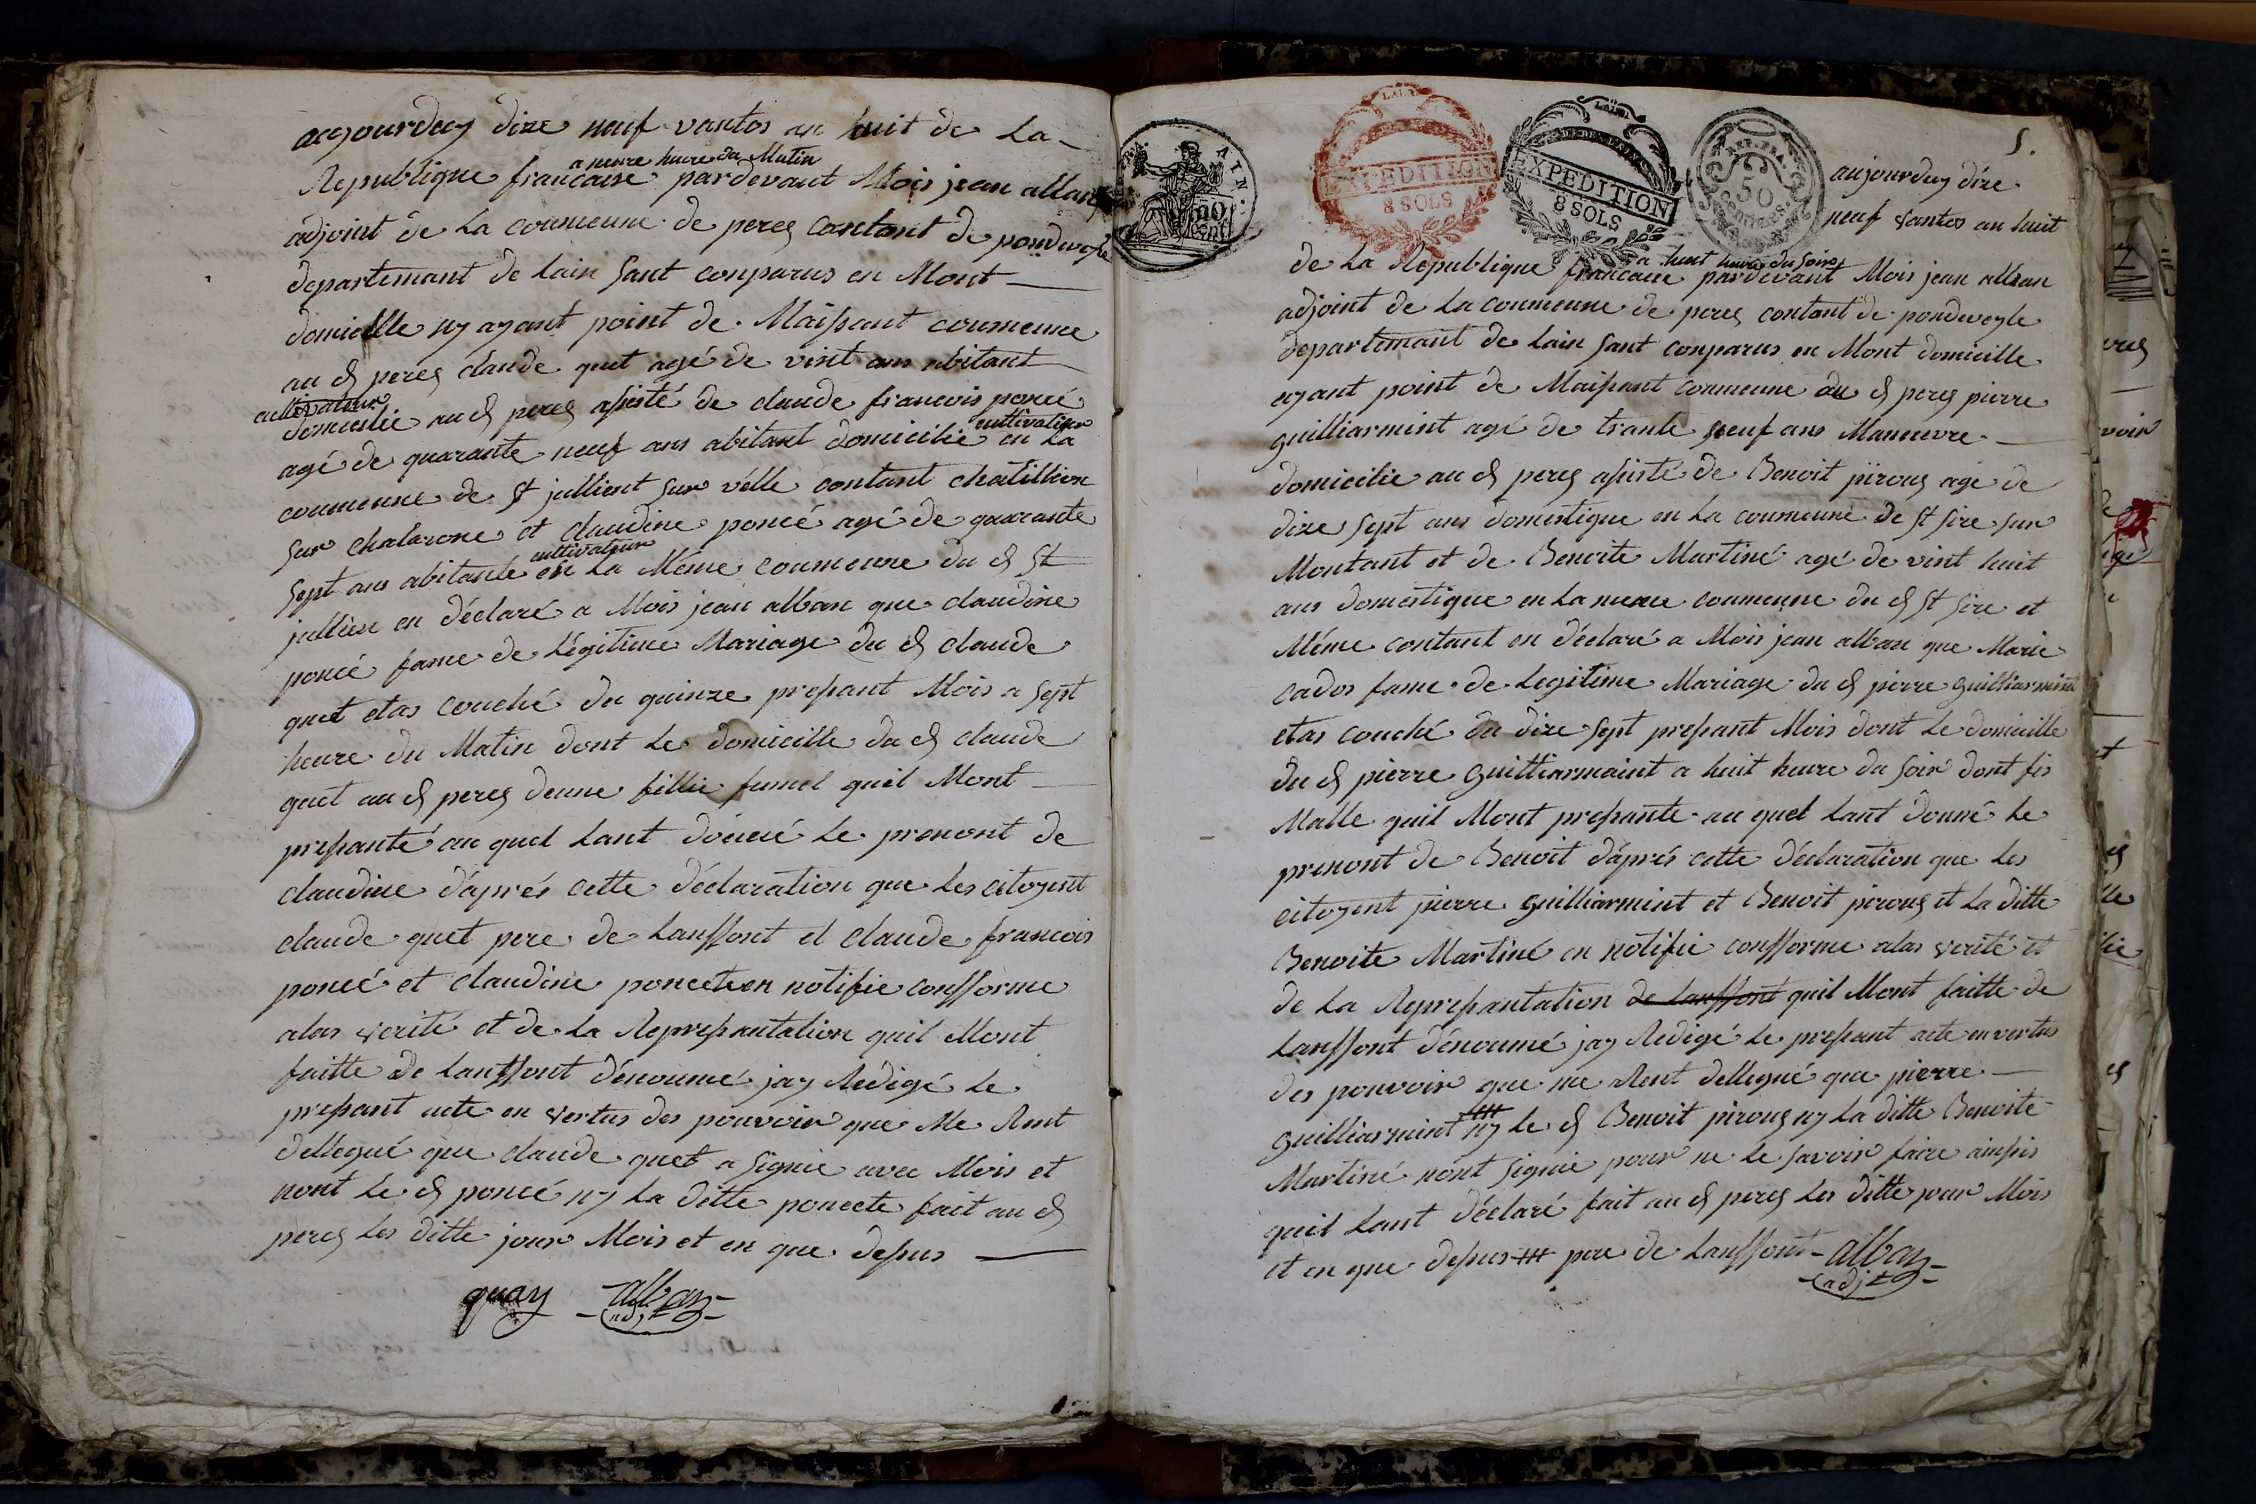 aujourduy dize neuf vantos an huit de La
a neuve heure du Matin
Republique francaise pardevant Mois jean alban
adjoint de La coumeune de peres Contant de pondeveyle
departemant de lain sant conparus en Mont
domicille ny ayant point de Maisant coumeune
au d peres claude quet agé de vint ans abitant
cultivateur
domicilie au d peres asisté de claude francois poncé
cultivatieur
agé de quarante neuf ans abitant domicilie en La
coumeune de st jullient sur velle contant chatillion
sur chalarone et claudine poncé agé de quarante
cultivateur
sept ans abitante en La Méme coumeune du d st
jullien on déclaré a Mois jean alban que claudine
poncé fame de Légitime Mariage du d claude
quet etas couché du quinze presant Mois a sept
heure du Matin dont Le domicille du d claude
quet au d peres deune fillie fumel quil Mont
presanté au quel Lant donné le prenont de
claudine d'aprés cette déclaration que Les citoyent
claude quet pere de Lanffont et Claude francois
poncé et claudine poncete on notifie confforme
alas verité et de La Represantation quil Mont
faitte de Lanffont dénoumé jay Redigé Le
presant acte en vertus des pouvoir que Me Sont
dellegué que claude quet a signie avec Mois et
nont Le d poncé ny La ditte poncete fait au d
peres Les ditte jour Mois et en que desus
quay alban
adjt
5.
LAIN
EXPEDITION
8 SOLS
LAIN
EXPEDITION
8 SOLS
REP. FRA.
50
Centimes.
AIN.
aujourduy dize
neuf vantos an huit
a huit heure du soire
de La Republique francaise pardevant Mois jean alban
adjoint de La coumeune de peres contant de pondeveyle
departemant de lain sant conparus en Mont domicille
nyant point de Maisant coumeune au d peres pierre
guilliarmint agé de trante neuf ans Maneuvre
domicilie au d peres asisté de Benoit pirous agé de
dize sept ans domestique en La coumeune de st sire sur
Montant et de Benoite Martiné agé de vint huit
ans domestique en La meme coumeune du d st sire et
Méme contant on déclaré a Mois jean alban que Marie
cados fame de Legitime Mariage du d pierre guilliarmint
etas couché du dize sept presant Mois dont Le domicille
du d pierre guilliarmaint a huit heure du soir dont fis
Malle quil Mont presante au quel Lant donné Le
prenont de Benoit d'aprés cette déclaration que Les
citoyent pierre guilliarmint et Benoit pirous et La ditte
Benoite Martiné on notifie confforme alas verité et
de La Represantation de Lanffont quil Mont faitte de
Lanffont dénoumé jay Redigé Le presant acte en vertus
des pouvoir que me Sont dellegué que pierre
guilliarmint ny Le d Benoit pirous ny La ditte Benoite
Martiné nont signie pour ne Le savoir faire ainsis
quil Lant déclaré fait au d peres Les ditte jour Mois
et en que desus pere de Lanffont alban
adjt